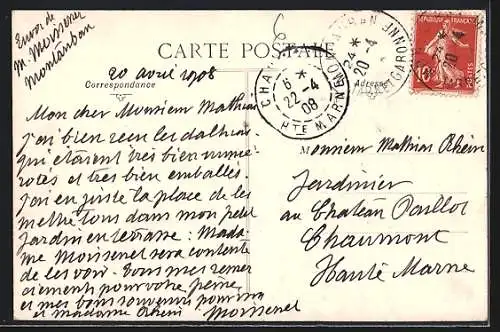 Envoi de
M. Moissenet
Montauban
CARTE POSTALE
Correspondance
Adresse
20 avril 1908
Mon cher Monsieur Mathias
j'ai bien reçu les dalhias
qui étaient très bien numé
rotés et très bien emballés.
j'ai eu juste la place de les
mettre tous dans mon petit
jardin en terrasse : Mada
me Moissenet sera contente
de les voir. Tous mes remer
ciements pour votre peine
et mes bons souvenirs pour vous
et Madame Rhein
Moissenet
Monsieur Mathias Rhein
Jardinier
au Château Paillot
Chaumont
Haute Marne
6 *
22-4
08
HTE MARNE
24 *
20-4
GARONNE
REPUBLIQUE FRANÇAISE
10
POSTES